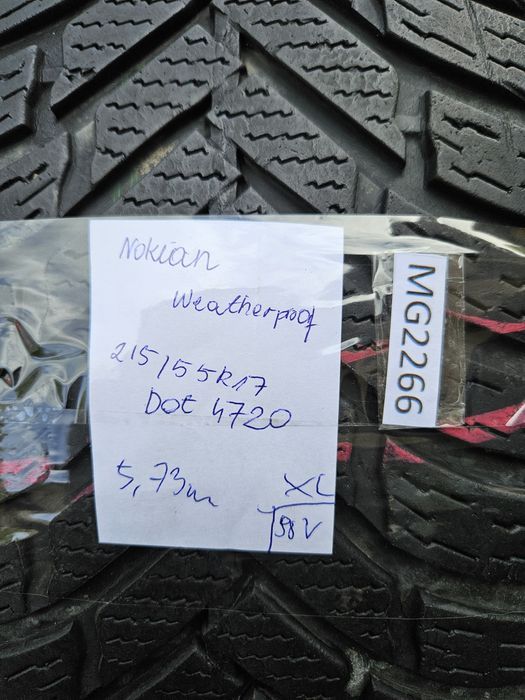 Nokian
Weatherproof
215/55R17
Dot 4720
5,73m
XL
98V
MG2266